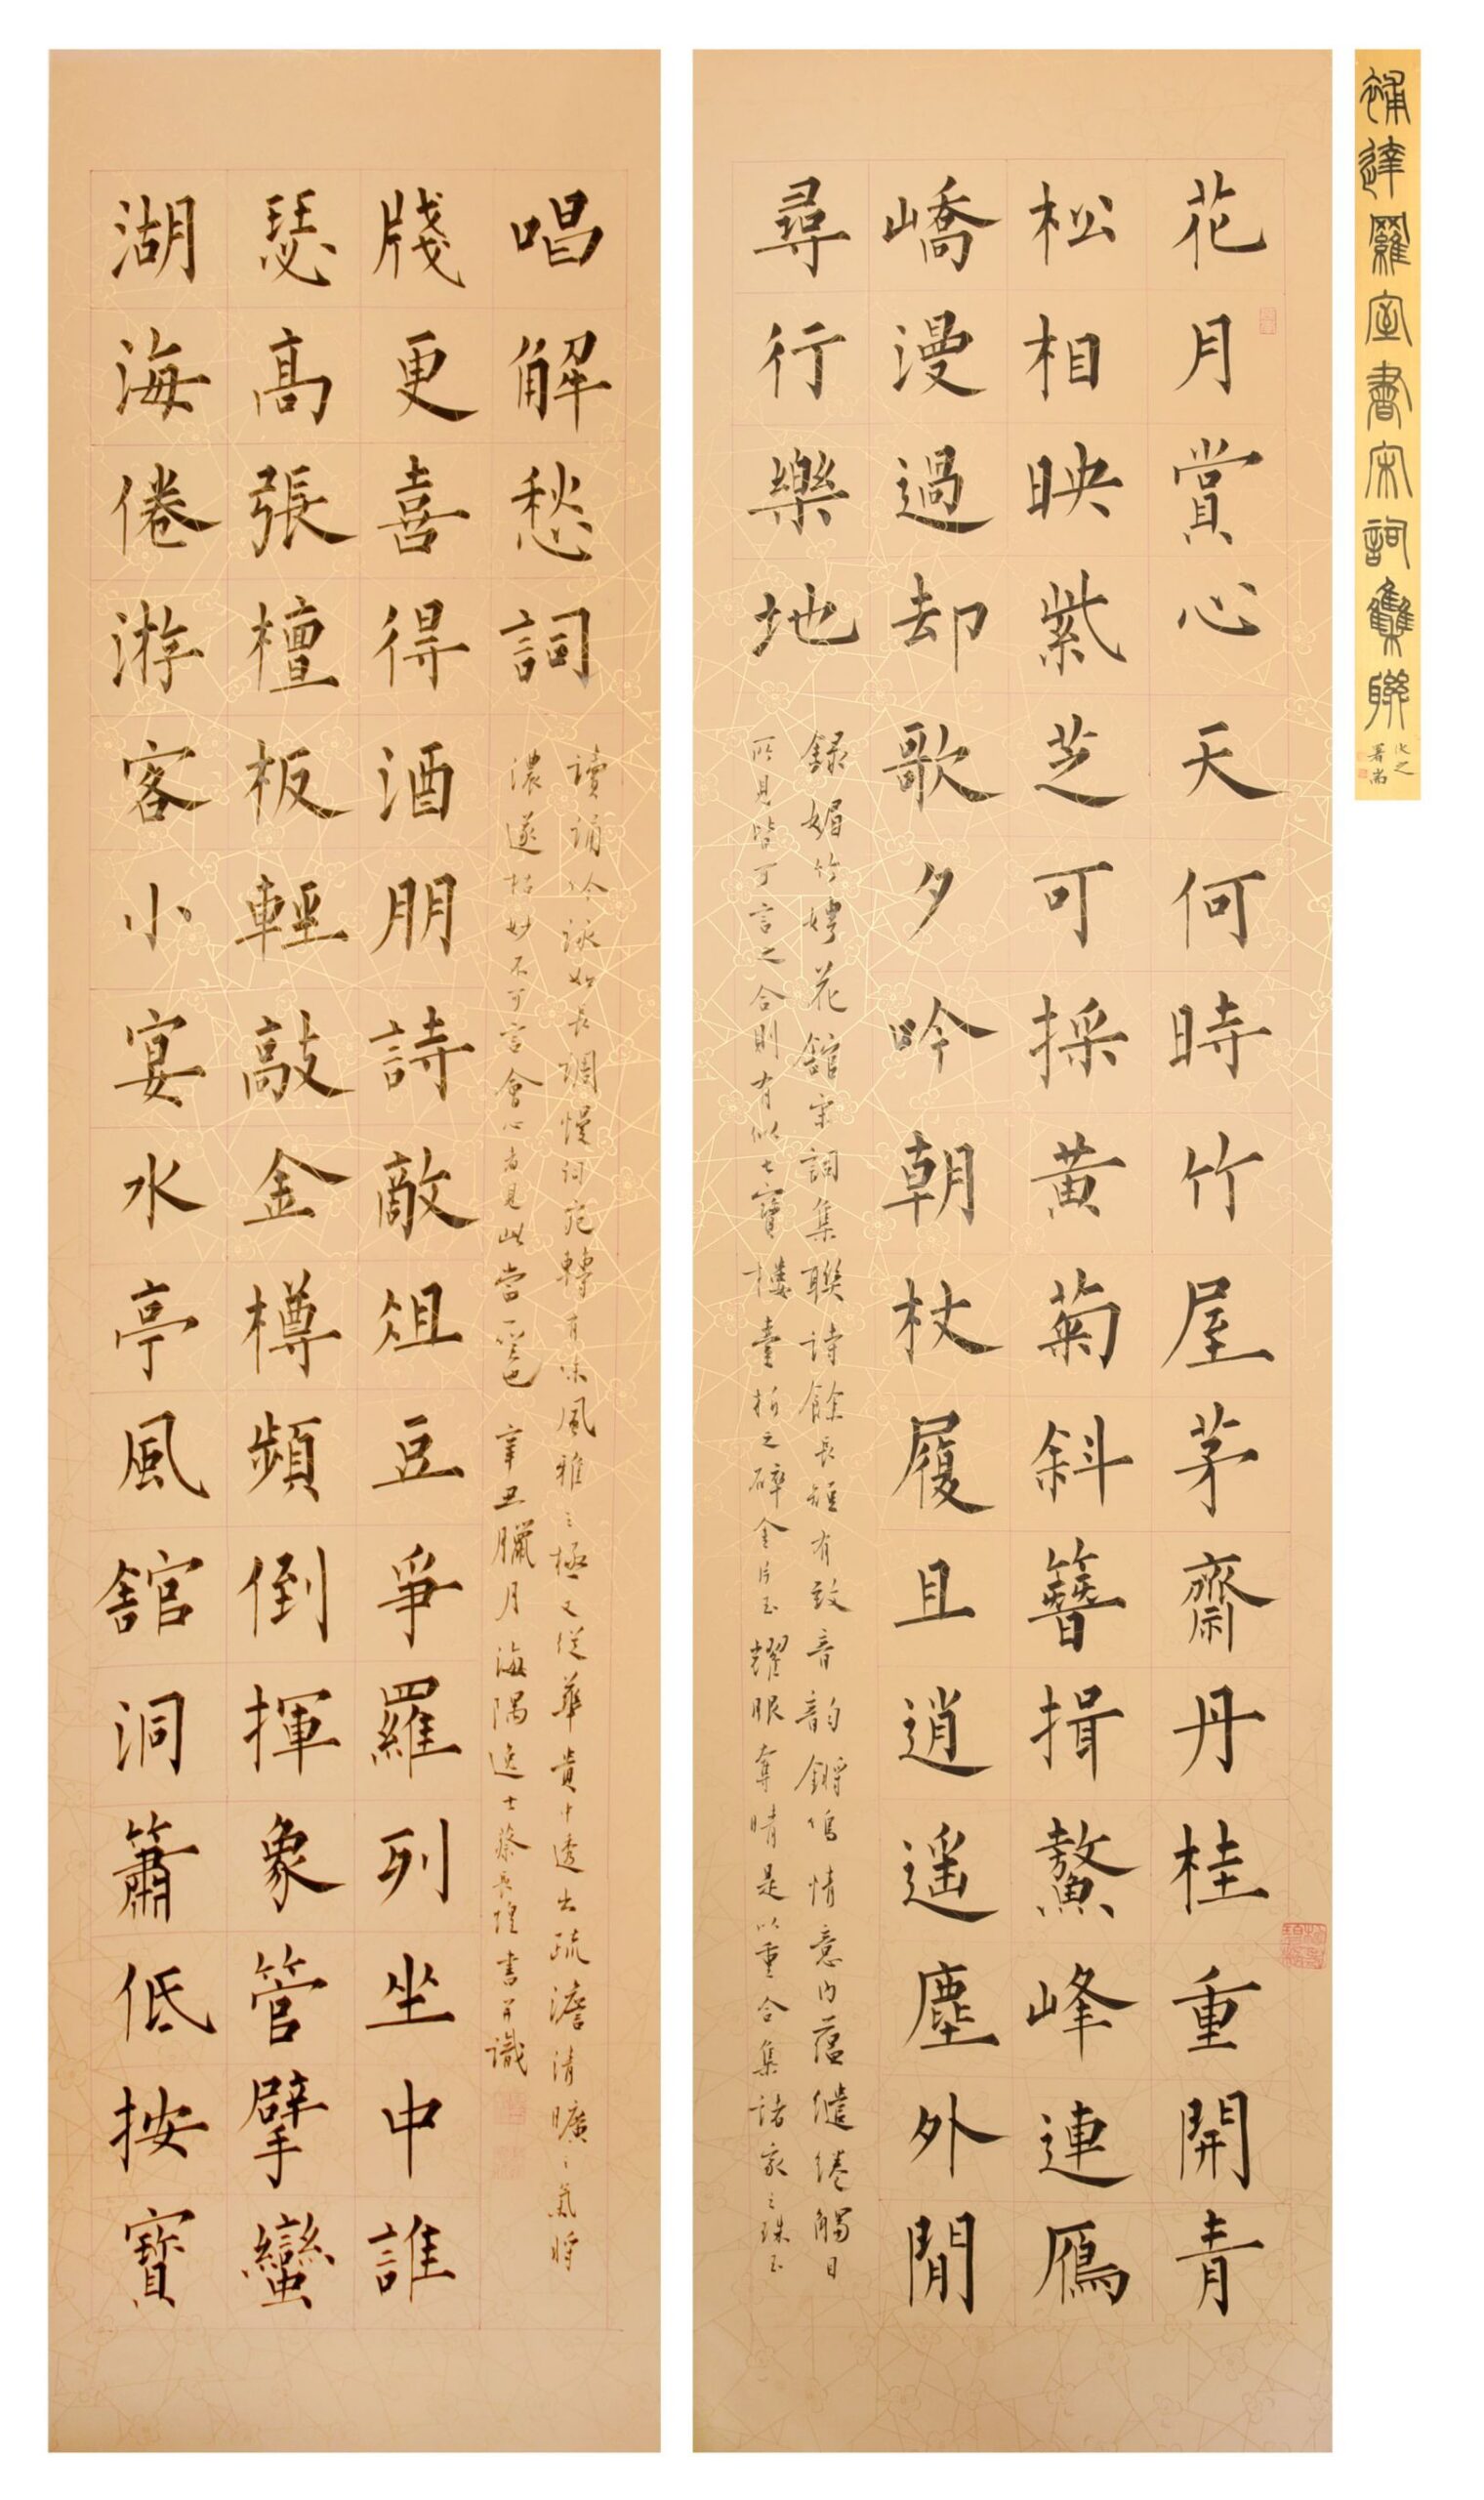 補達羅室書宋詞雙聯
化之
署耑
花月賞心天何時竹屋茅齋丹桂重開青
松相映紫芝可採黃菊斜簪揖鰲峰連鴈
嶠漫過却歌夕吟朝杖履且逍遥塵外閒
尋行樂地
録媚竹娉花館宋詞集聯詩餘長短有致音韵鏘鳴情意内蘊繾綣觸目
所見皆可言之合則有似七寶樓臺拆之碎金片玉耀眼奪睛是以重合集諸家之珠玉
湖海倦游客小宴水亭風館洞簫低按寶
瑟高張檀板輕敲金樽頻倒揮象管擘蠻
牋更喜得酒朋詩敵俎豆爭羅列坐中誰
唱解愁詞
讀誦吟詠如長調慢詞宛轉有味風雅之極又從華貴中透出疏澹清曠之氣將
濃遂枯妙不可言會心者見此當 辛丑臘月海隅逸士蔡長書並識